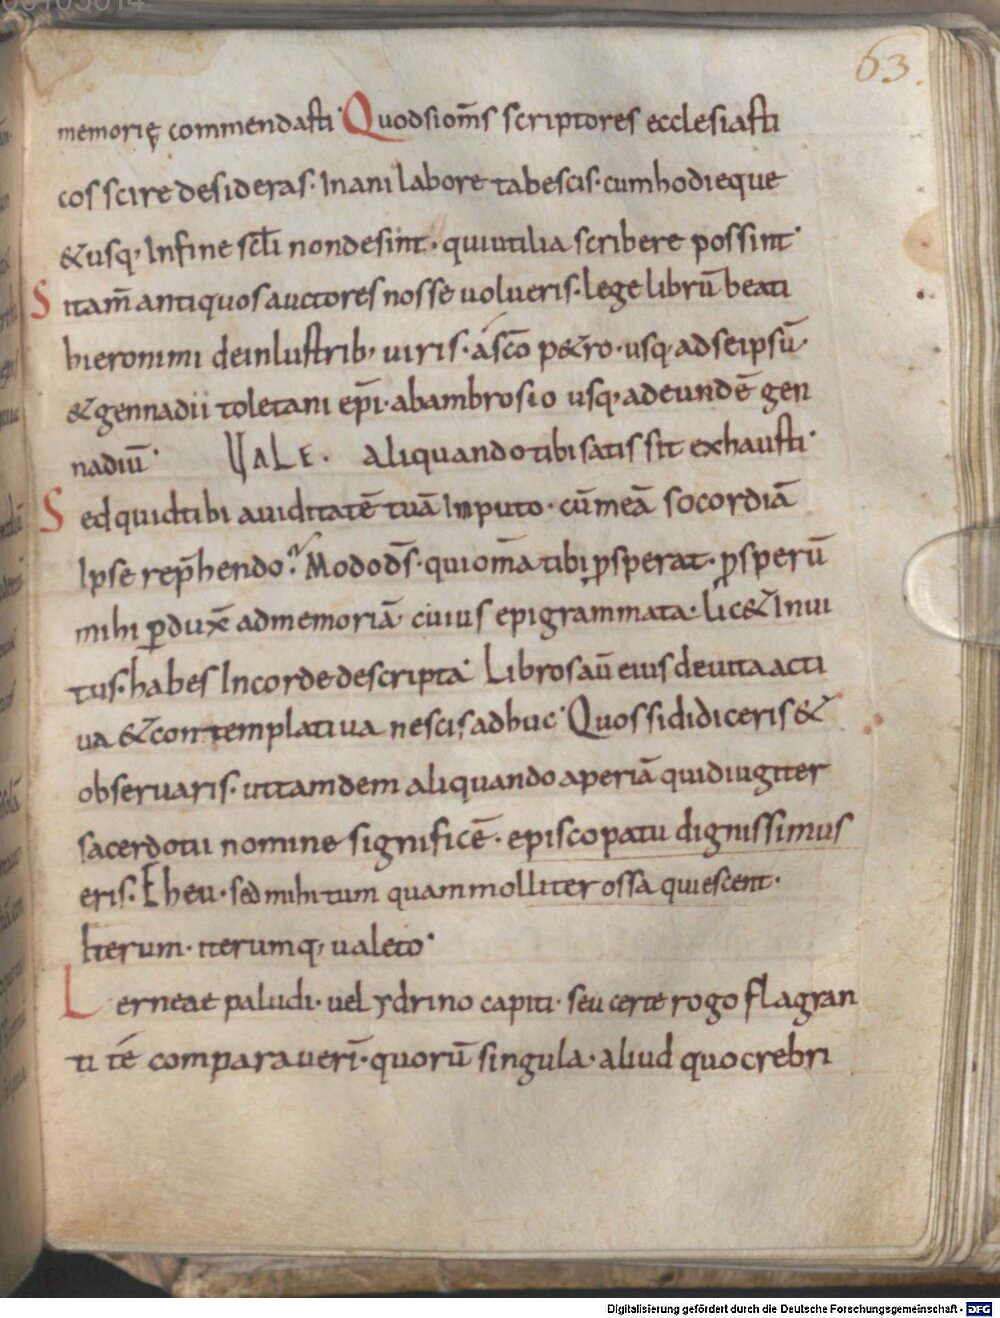 63.
memorię commendasti· Quodsiom̄s scriptores ecclesiasti
cos scire desideras· Inani labore tabescis· cumhodieque
&usq; Infine sc̄li nondesint· quiutilia scribere possint·
Sitam̄ antiquos auctores nosse uolueris· lege librū beati
hieronimi deinlustrib; uiris· asc̄o p&ro· usq; adseipsū·
&gennadii toletani ep̄i· abambrosio usq; adeundē gen
nadiū· VALE· aliquando tibi satis sit exhausti·
Sed quid tibi auiditatē tuā Inputo· cū meā socordiā
Ipse rep̄hendo? Modo ds̄· qui om̄a tibi ꝓsperat· ꝓsperū
mihi ꝑdux̄ admemoriā· cuius epigrammata· lic& Inui
tus· habes Incorde descripta· Libros aū eius deuita acti
ua &contemplatiua nescis adhuc· Quos si didiceris &
obseruaris· uttamdem aliquando aperiā quid iugiter
sacerdotii nomine significē· episcopatu dignissimus
eris· Eheu· sed mihi tum quam molliter ossa quiescent·
Iterum· iterumq; ualeto·
Lerneae paludi· uel ydrino capiti· seu certe rogo flagran
ti té comparauerī· quorū singula· aliud quo crebri
Digitalisierung gefördert durch die Deutsche Forschungsgemeinschaft - DFG